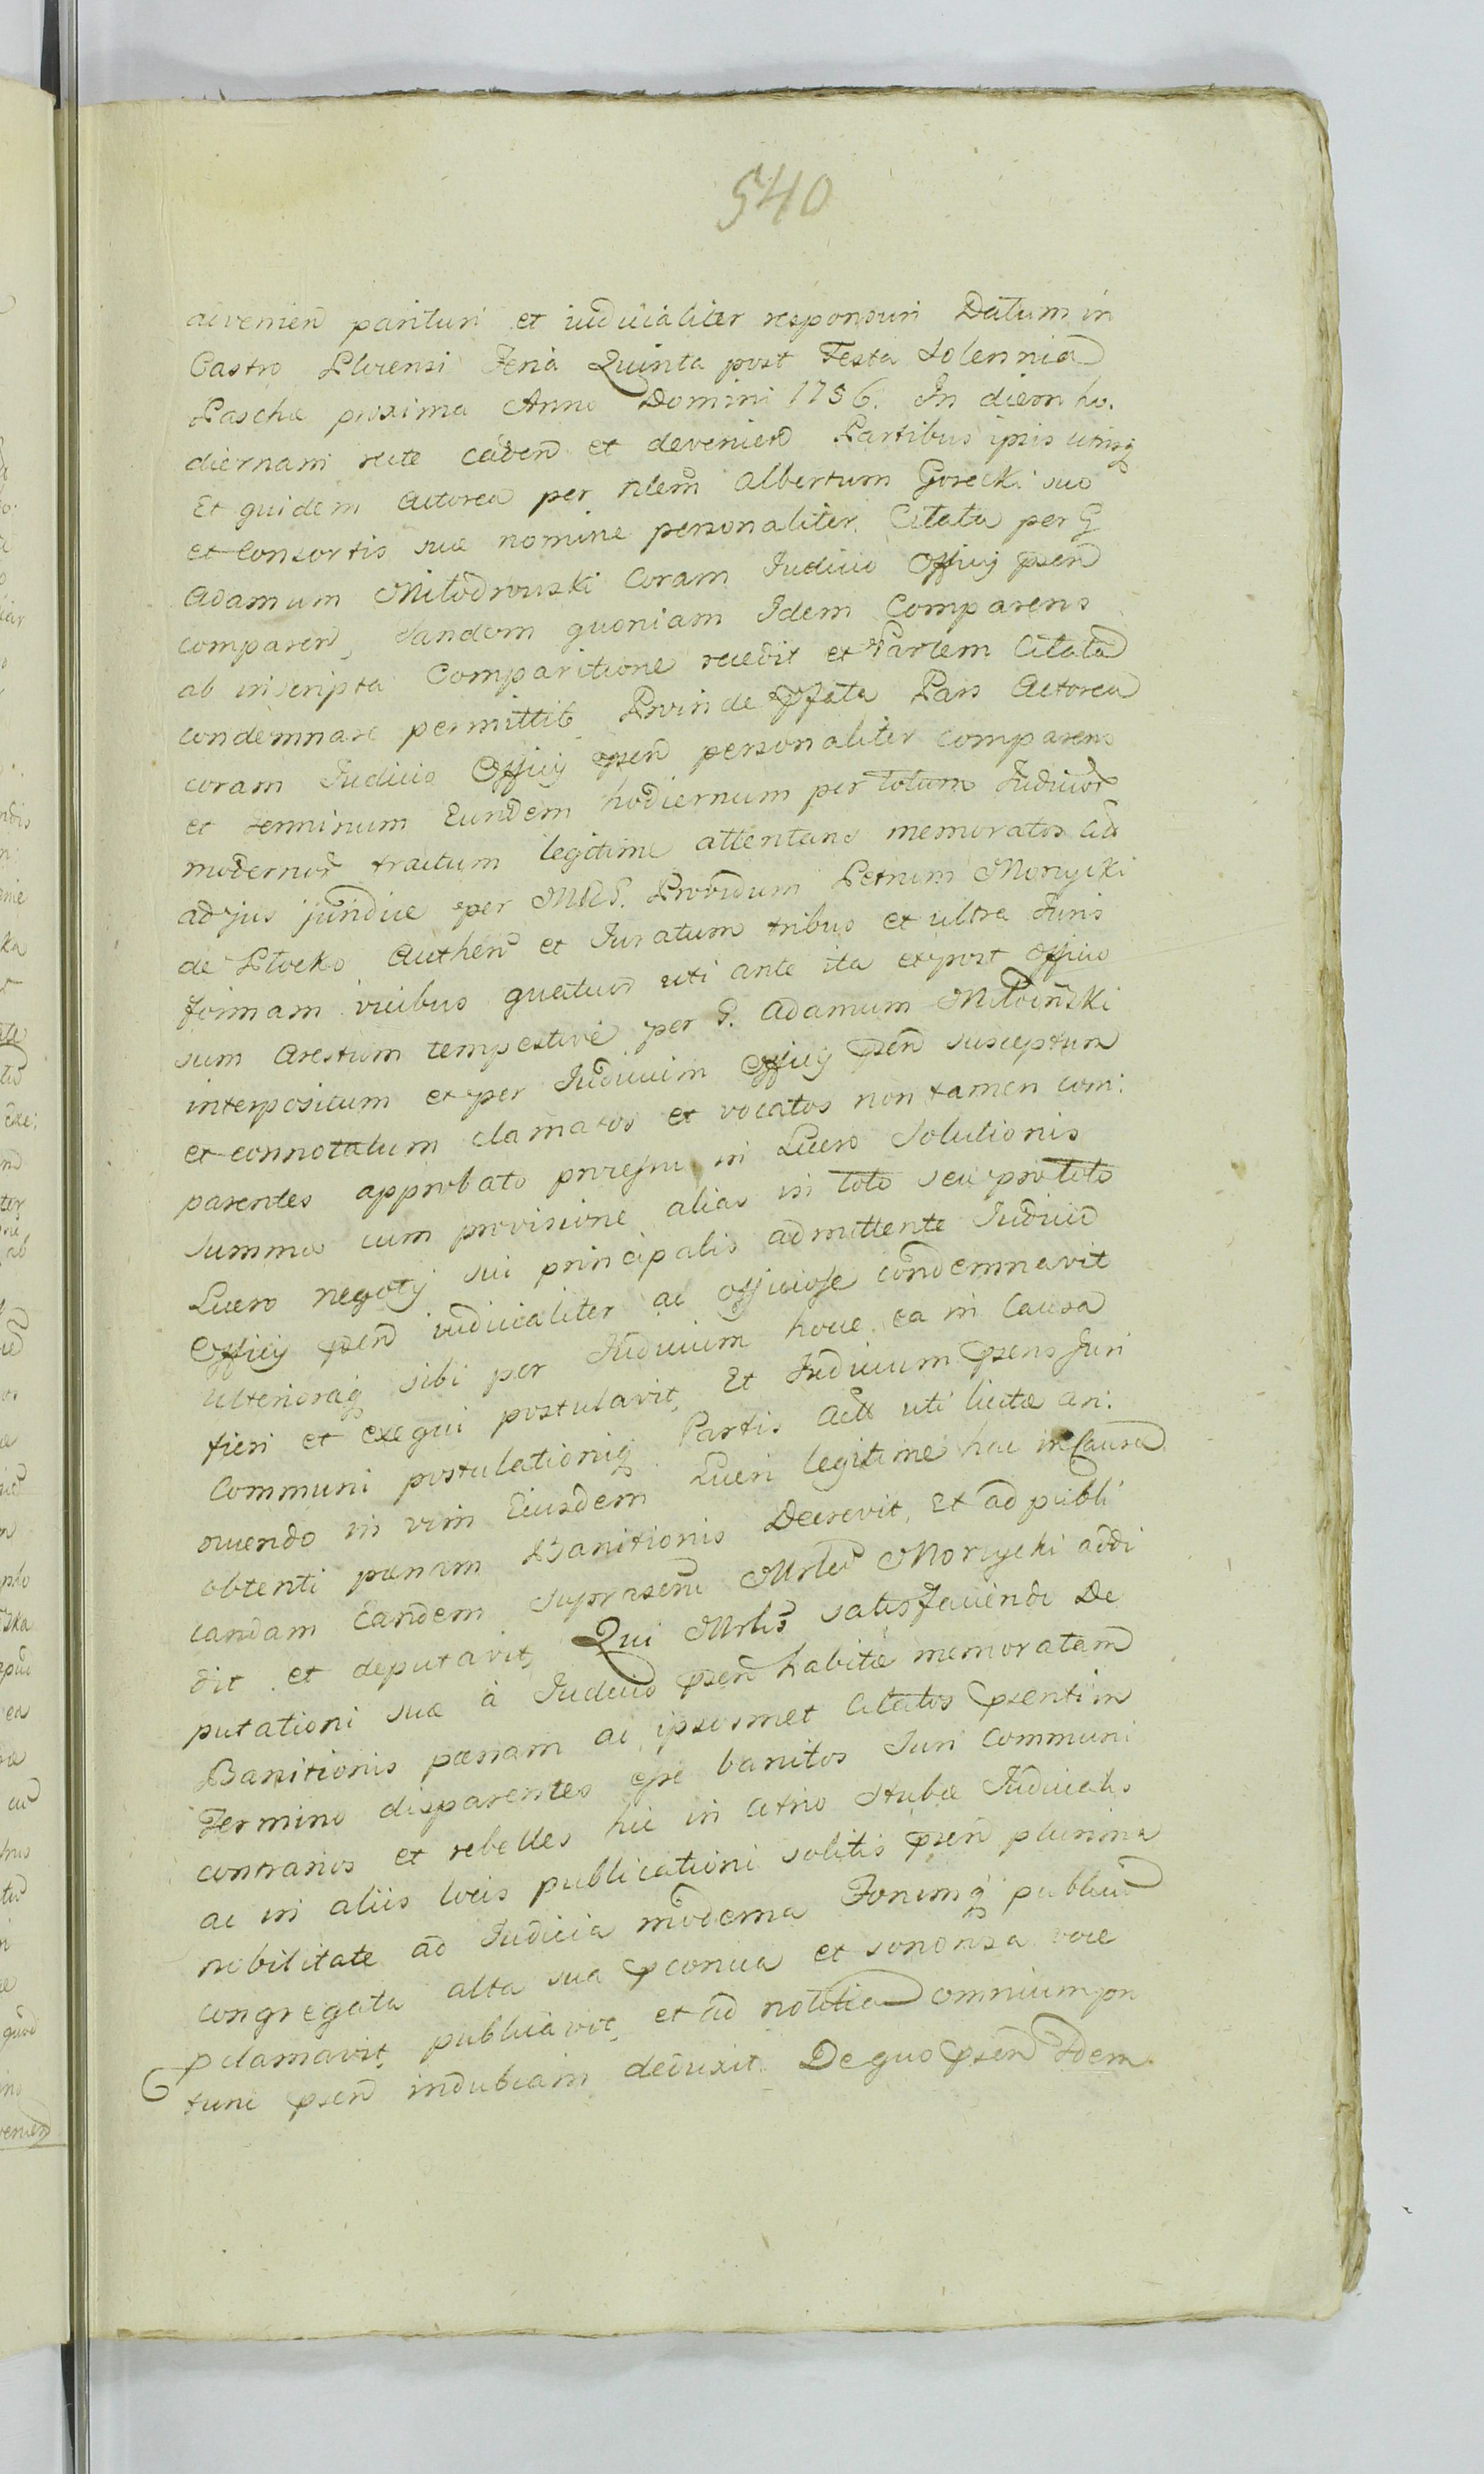 540
advenien parituri et iudicialiter responsuri Datum in
Castro Plocensi Feria Quinta post Festa Solennia
Paschæ proxima Anno Domini 1756. In diem ho.
diernam recte caden et devenien Partibus ipsis utrisq
Et quidem Actorea per Nlem Albertum Gorecki suo
et Consortis suæ nomine personaliter. Citata per G
Adamum Miłodrowski Coram Iudicio Officij psen
comparen, Tandem quoniam Idem Comparens
ab inscripta Comparitione recedit et Partem Citata
condemnare permittit Proinde Pfata Pars Actorea
coram Iudicio Officij psen personaliter comparens
et Terminum Eundem hodiernum per totum Iudicior
modernor tractum legitime attentans memoratos Cit
ad jus juridice per MRS. Providum Petrum Morycki
de Płocko Authen et Iuratum tribus et ultra Iuris
formam vicibus quatuor uti ante ita et post Officio
sum Arestum tempestive per G. Adamum Miłoiński
interpositum et per Iudicium Officij psen susceptum
et connotatum clamatos et vocatos non tamen com:
parentes approbato processu in Lucro Solutionis
summæ cum provisione alias in toto seu pro toto
Lucro negotij sui principalis admittente Iudicio
Officij psen iudicialiter ac officiose condemnavit
Ulterioraq sibi per Iudicium hocce ea in Causa
fieri et exequi postulavit, Et Iudicium psens Iuri
Communi postulationiq Partis Actt uti licitæ an:
nuendo in vim Eiusdem Lucri legitime hac in Causa
obtenti pænam Banitionis Decrevit, Et ad publi
candam Eandem suprascrn Mrlem Morycki addi
dit et deputavit, Qui Mrlis satisfaciendo De
putationi suæ à Iudicio psen habitæ memoratam
Banitionis pænam ac ipsosmet Citatos psenti in
Termino disparentes esse banitos Iuri Communi
contrarios et rebelles hic in Atrio Stubæ Iudicialis
ac in aliis locis publicationi solitis psen plurima
nobilitate ad Iudicia moderna Forumq publicum
congregata alta sua pconica et sonorosa voce
pclamavit, publicavit, et ad notitia omnium pn
tunc psen indubiam deduxit. De quo psen Idem